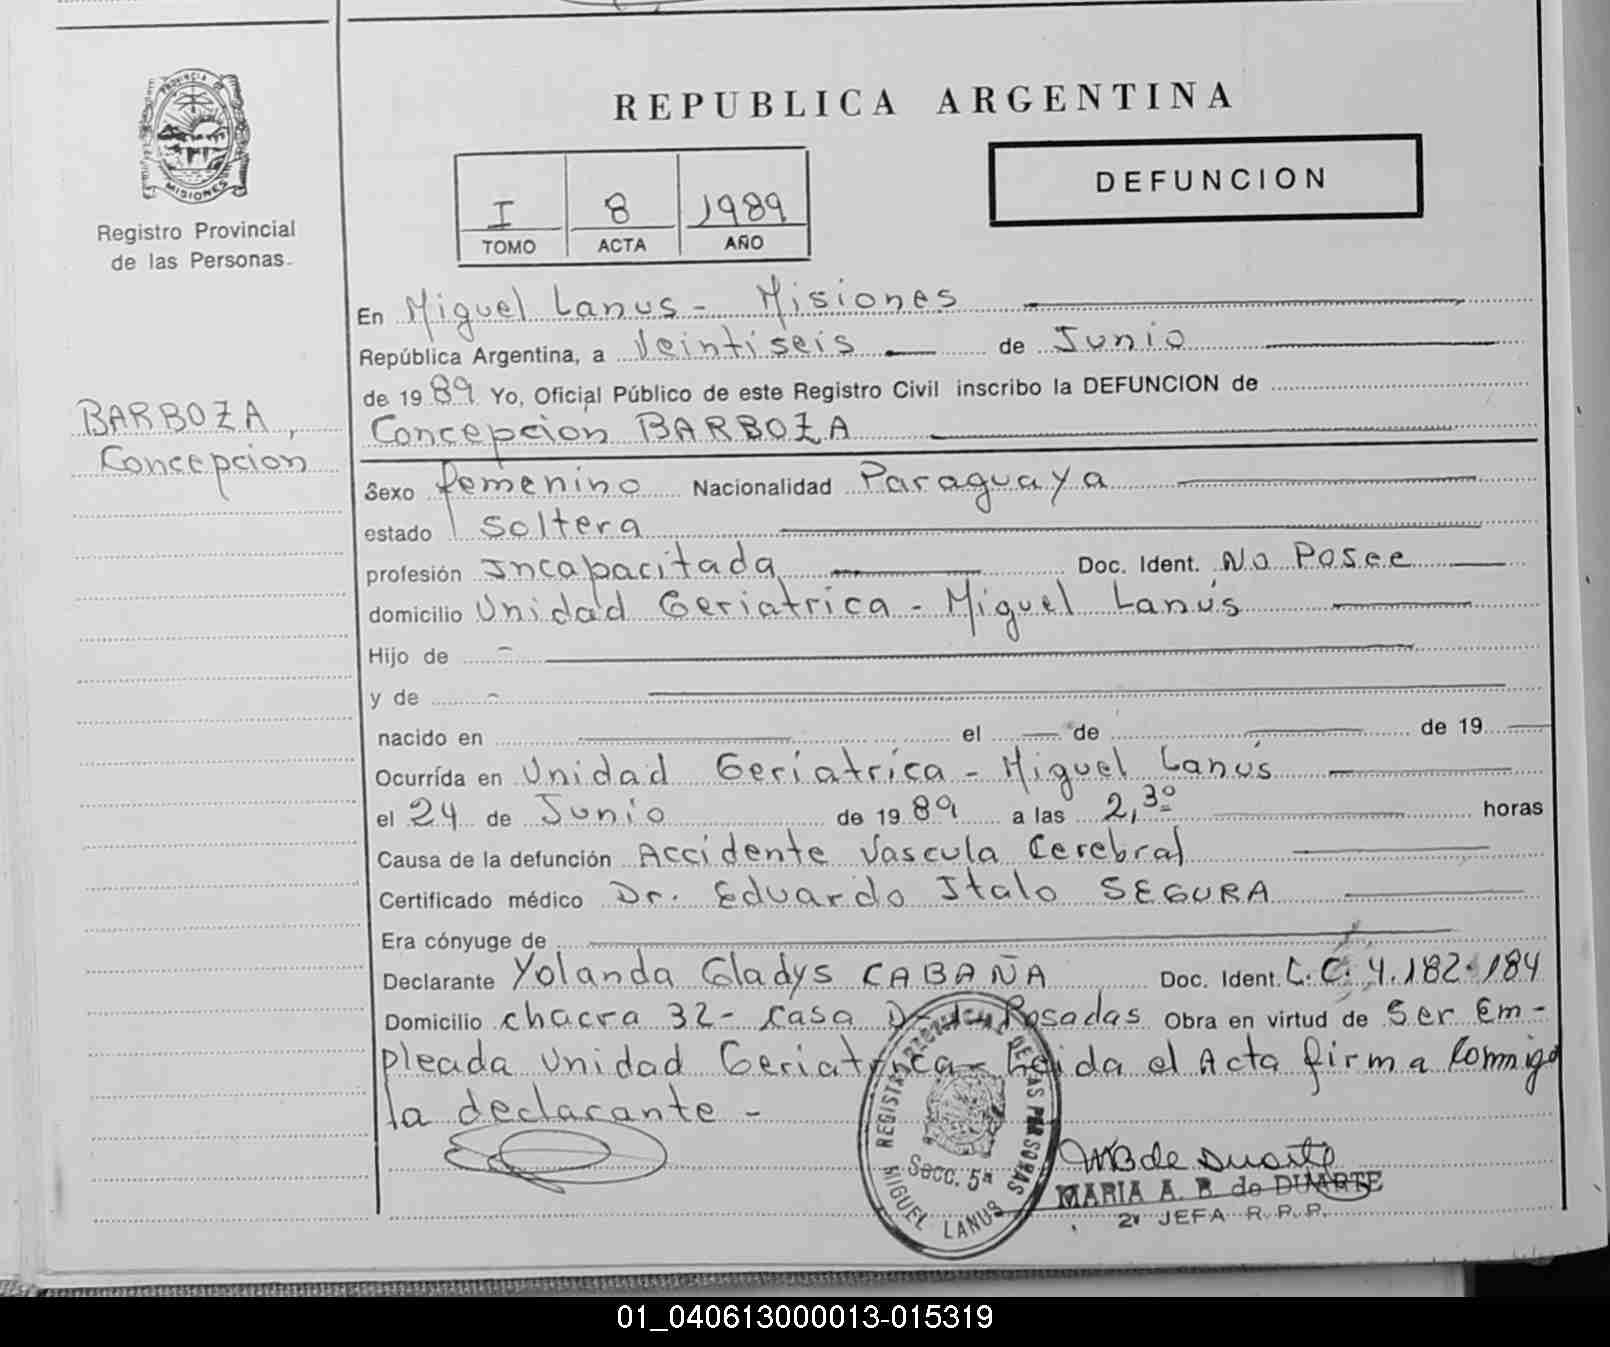 REPUBLICA ARGENTINA
PROVINCIA DE
MISIONES
Registro Provincial
de las Personas.
I 8 1989
TOMO ACTA AÑO
DEFUNCION
En Miguel Lanus - Misiones
República Argentina, a Veintiseis de Junio
de 1989 Yo, Oficial Público de este Registro Civil inscribo la DEFUNCION de
BARBOZA,
Concepcion
Concepcion BARBOZA
Sexo femenino Nacionalidad Paraguaya
estado soltera
profesión Incapacitada Doc. Ident. No Posee
domicilio Unidad Geriatrica - Miguel Lanús
Hijo de -
y de -
nacido en el de de 19
Ocurrída en Unidad Geriatrica - Miguel Lanús
el 24 de Junio de 1989 a las 2,3º horas
Causa de la defunción Accidente Vascula Cerebral
Certificado médico Dr. Eduardo Italo SEGURA
Era cónyuge de
Declarante Yolanda Gladys CABAÑA Doc. Ident. L.C. 4.182.184
Domicilio chacra 32 - Casa Posadas Obra en virtud de Ser Em-
pleada Unidad Geriatrica - Leida el Acta firma Conmigo
la declarante -
REGISTRO PROVINCIAL DE LAS PERSONAS
Secc. 5ª
MIGUEL LANUS
MB de Duarte
MARIA A. B. de DUARTE
2ª JEFA R. P. P.
01_040613000013-015319